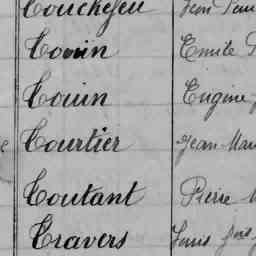 Touchefeu Jean
Touin Emile
Touin Eugène
Tourtier Jean Marie
Toutant Pierre
Travers Louis